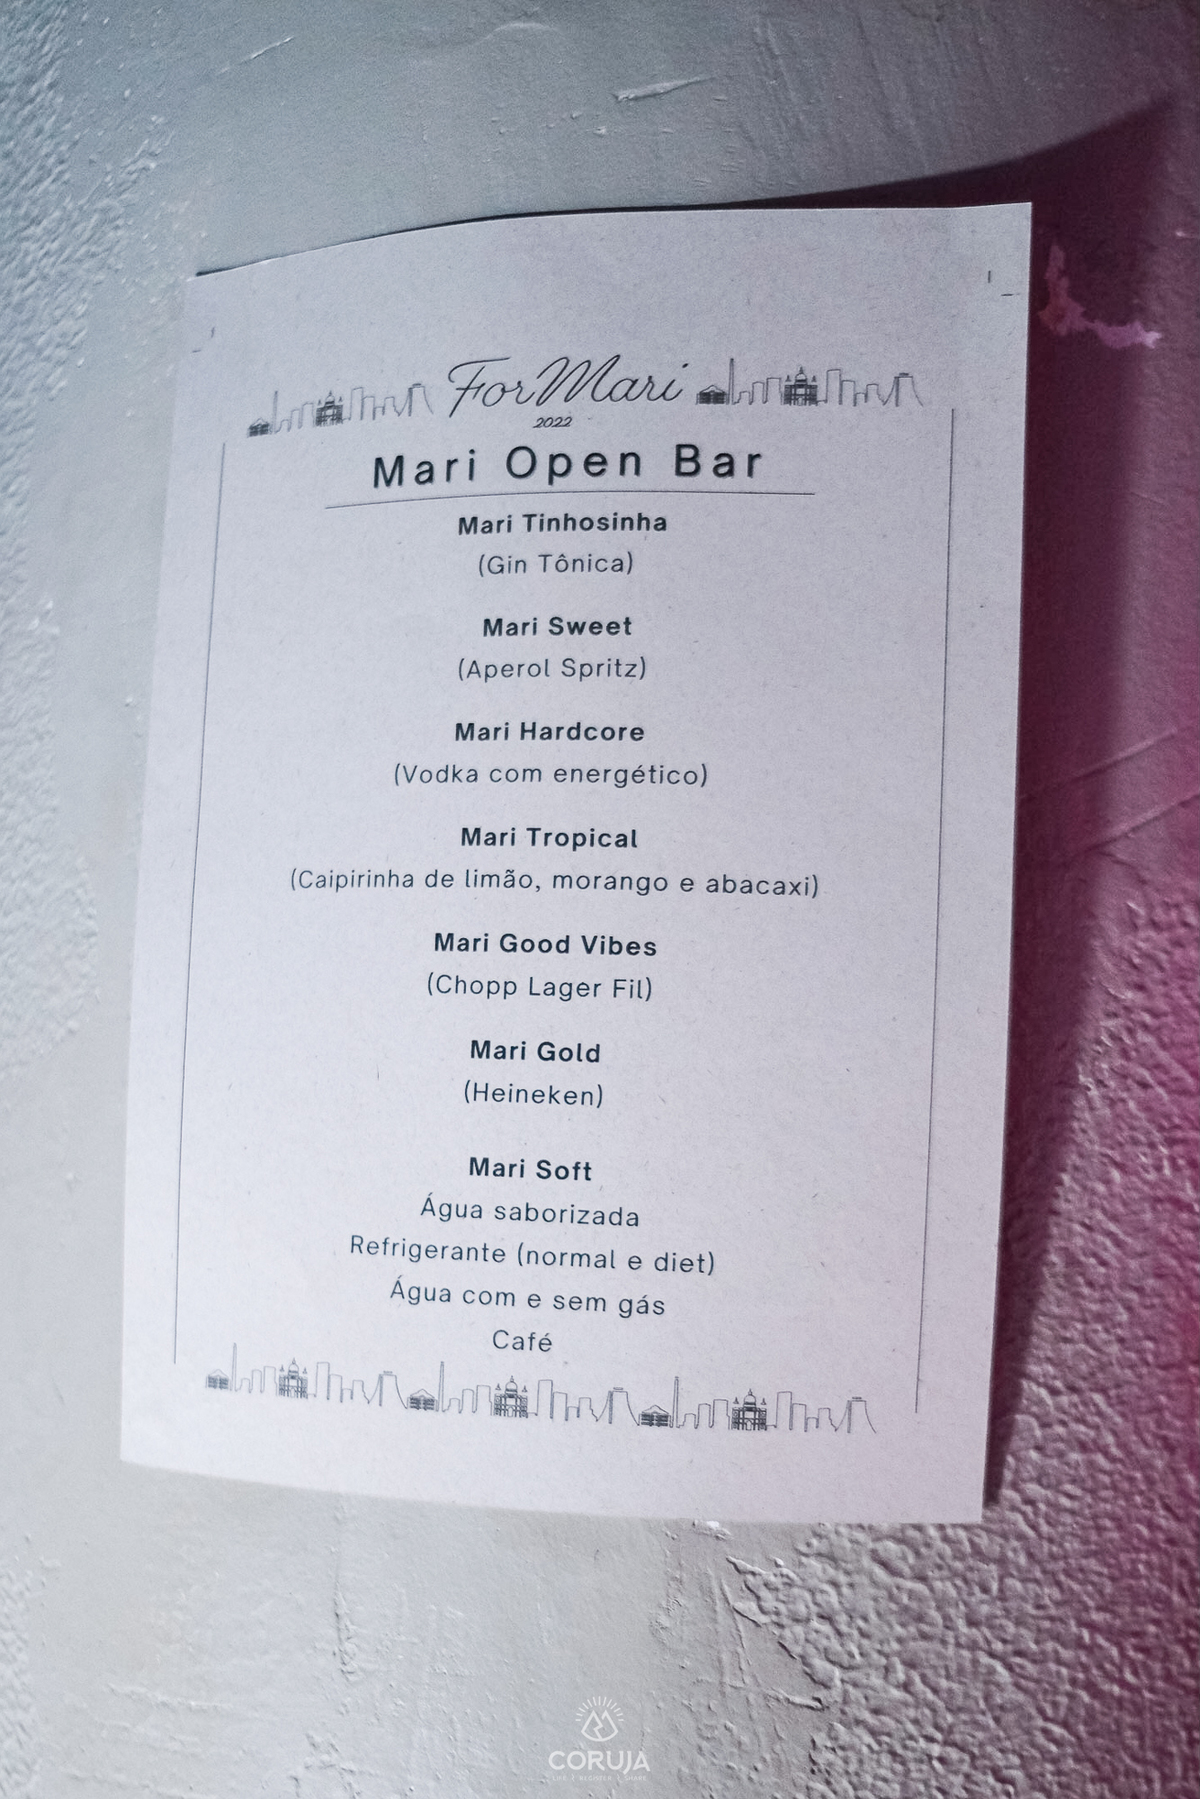 ForMari
2022
Mari Open Bar
Mari Tinhosinha
(Gin Tônica)
Mari Sweet
(Aperol Spritz)
Mari Hardcore
(Vodka com energético)
Mari Tropical
(Caipirinha de limão, morango e abacaxi)
Mari Good Vibes
(Chopp Lager Fil)
Mari Gold
(Heineken)
Mari Soft
Água saborizada
Refrigerante (normal e diet)
Água com e sem gás
Café
CORUJA